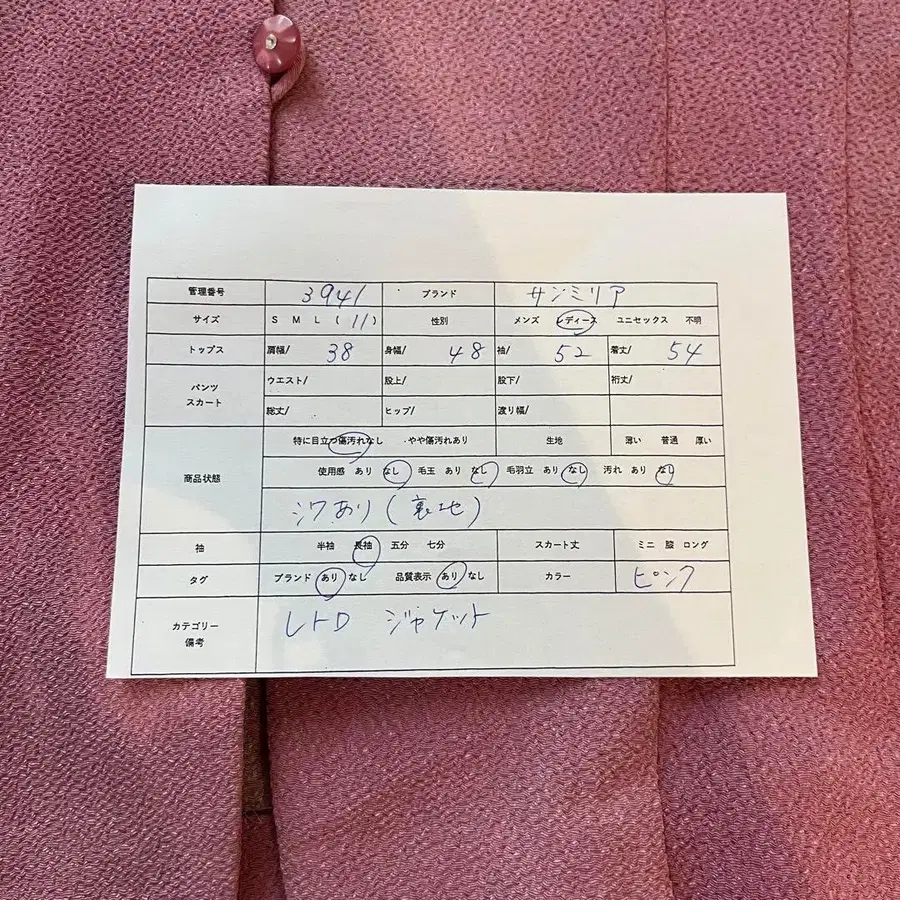 管理番号 3941 ブランド サンミリア
サイズ S M L ( 11 ) 性別 メンズ レディース ユニセックス 不明
トップス 肩幅/ 38 身幅/ 48 袖/ 52 着丈/ 54
パンツ スカート ウエスト/ 股上/ 股下/ 裄丈/
総丈/ ヒップ/ 渡り幅/
商品状態 特に目立つ傷汚れなし ・やや傷汚れあり 生地 薄い 普通 厚い
使用感 あり なし 毛玉 あり なし 毛羽立 あり なし 汚れ あり なし
シワあり (裏地)
袖 半袖 長袖 五分 七分 スカート丈 ミニ 膝 ロング
タグ ブランド あり なし 品質表示 あり なし カラー ピンク
カテゴリー 備考 レトロ ジャケット